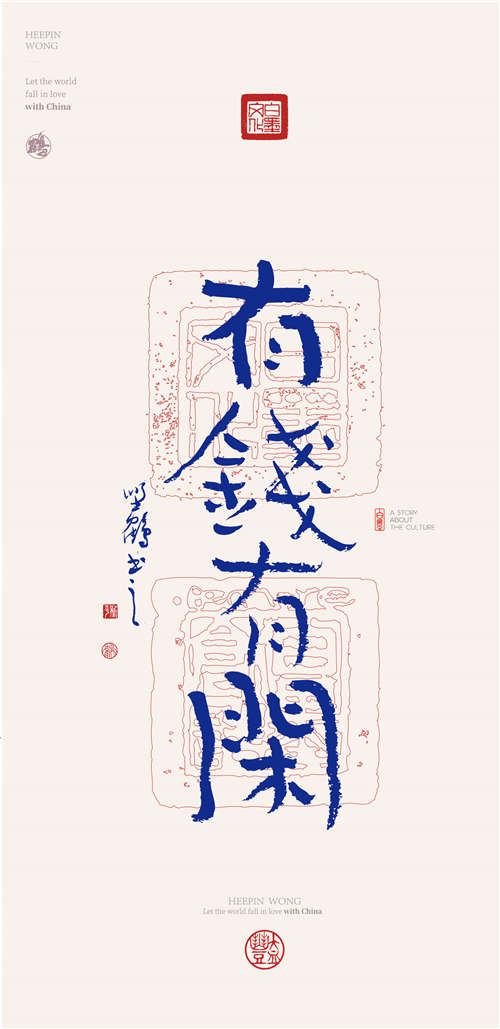 HEEPIN
WONG
Let the world
fall in love
with China
白墨
文化
有
錢
有
閑
A STORY
ABOUT
THE CULTURE
HEEPIN WONG
Let the world fall in love with China